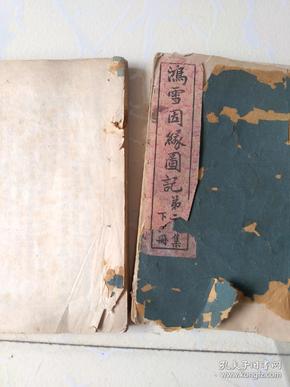 鴻雪因緣圖記第二集
下冊
孔夫子旧书网
www.kongfz.com